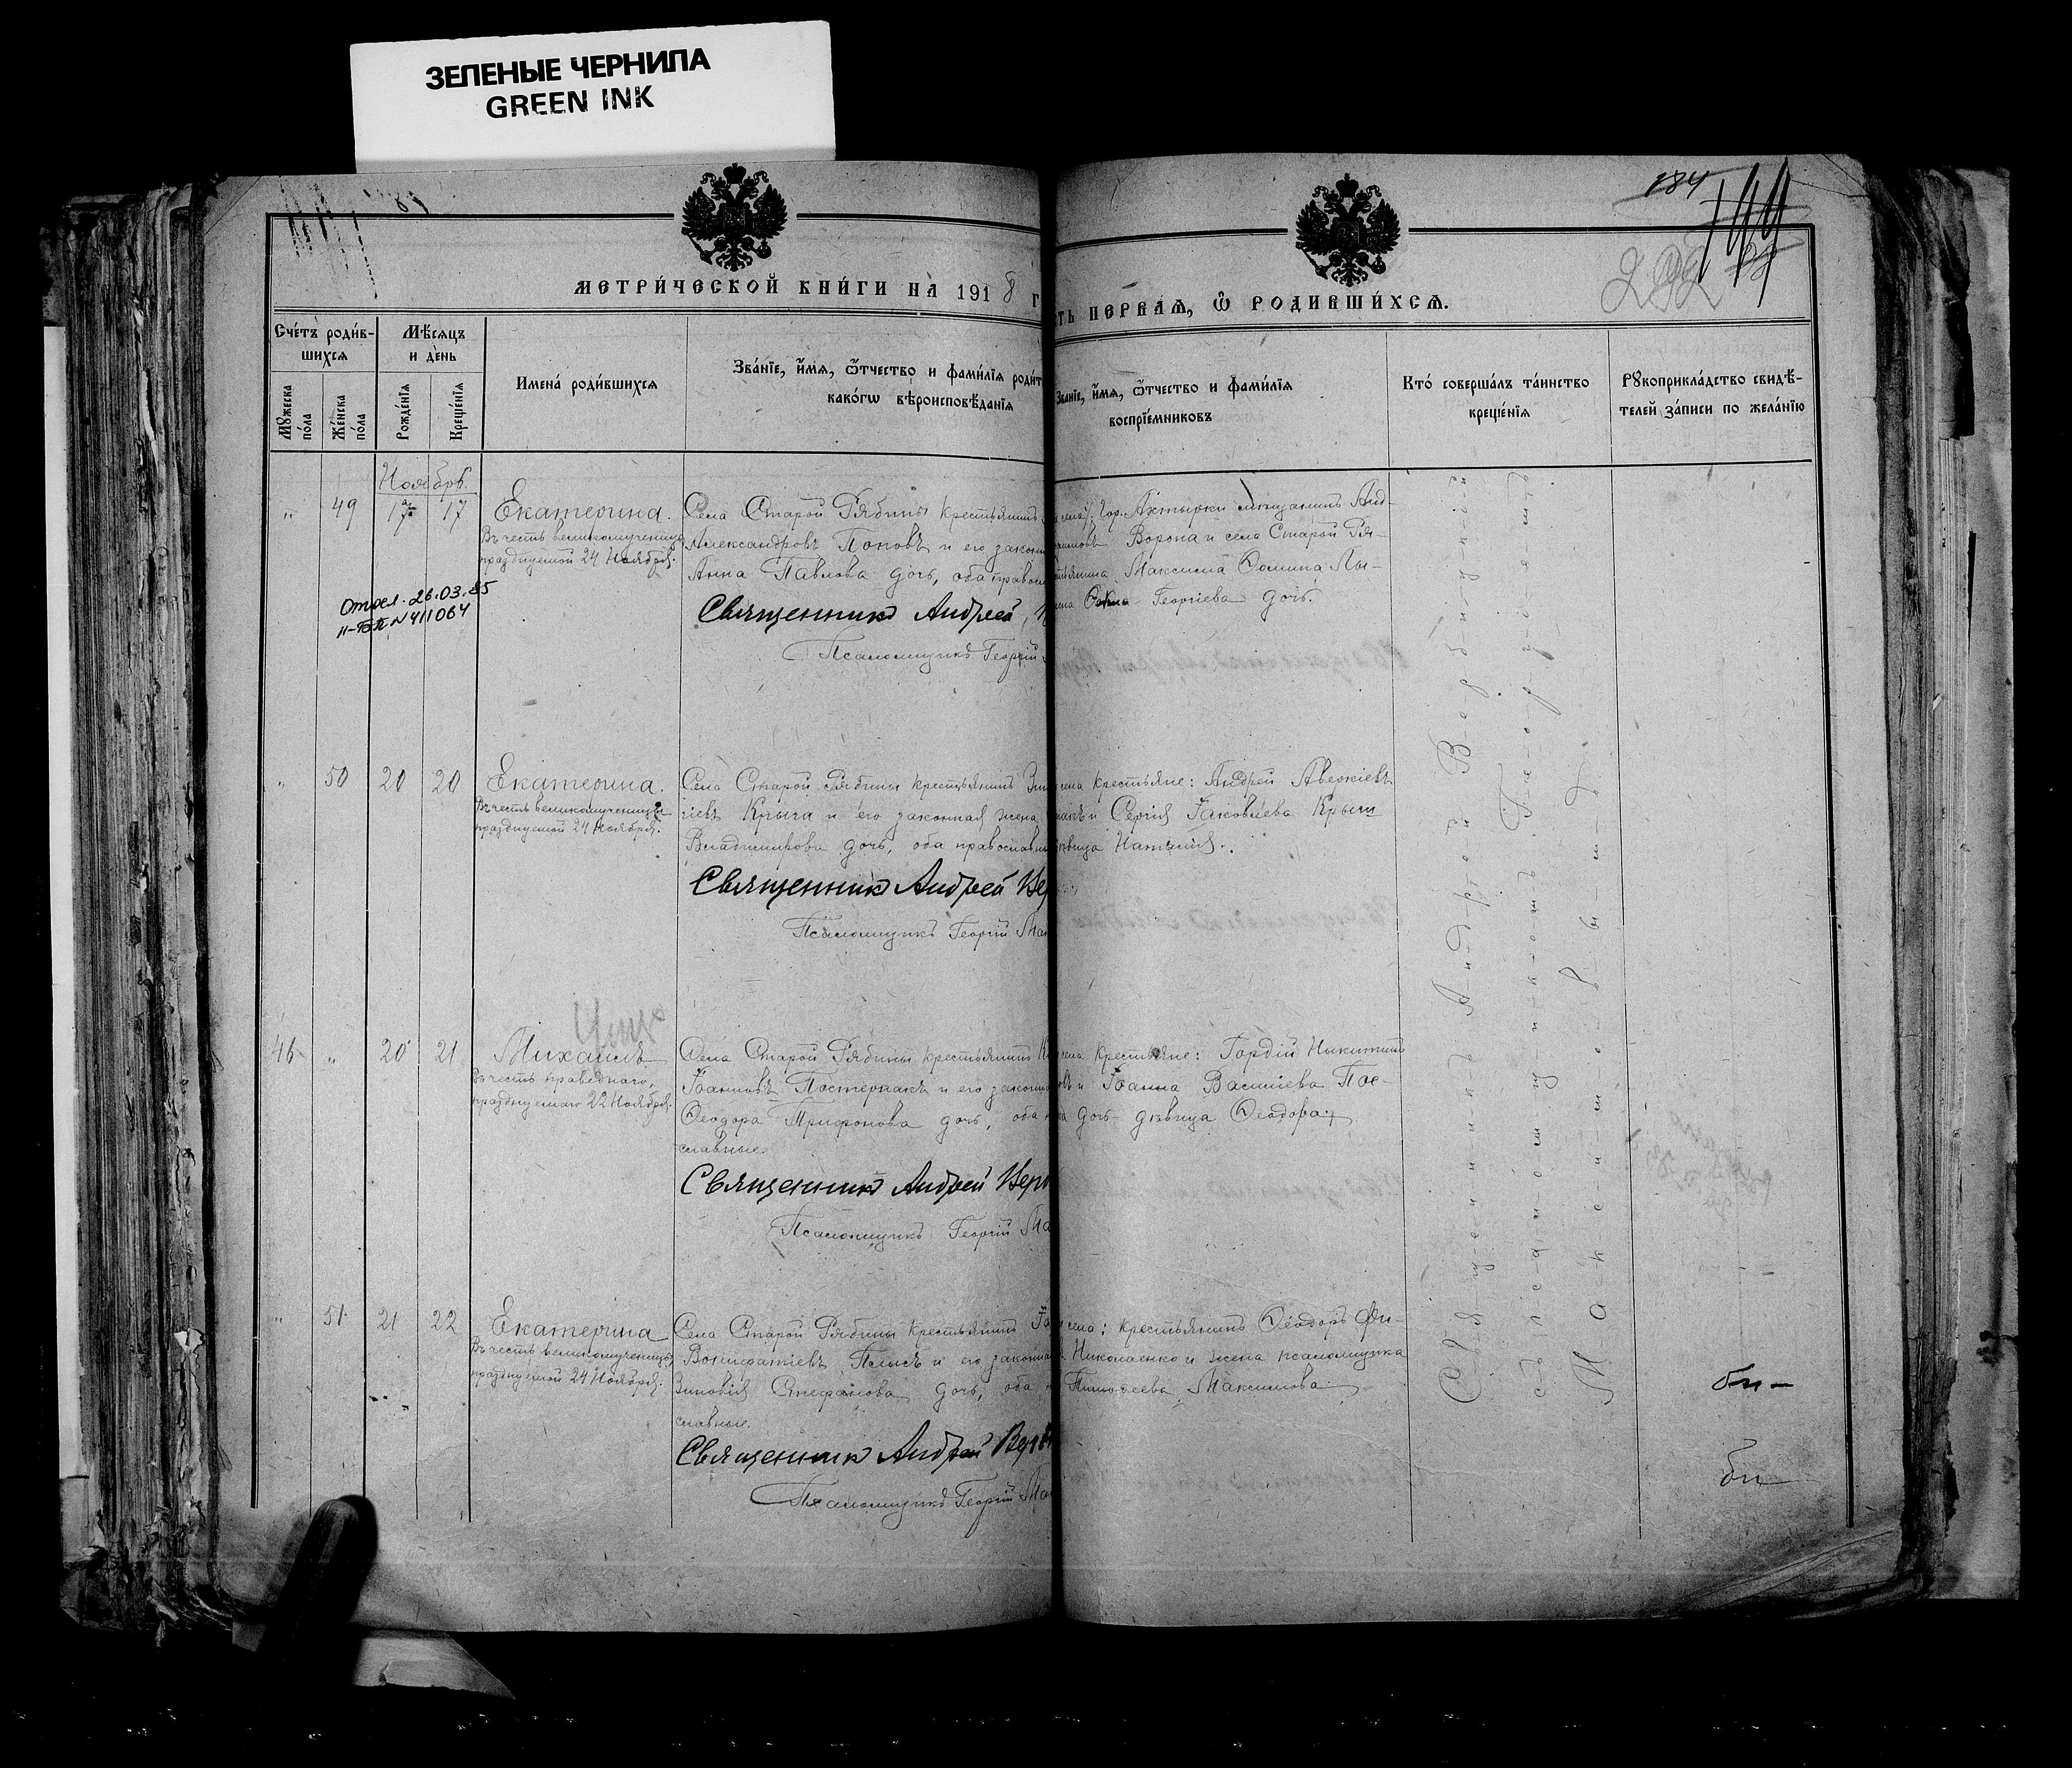 ЗЕЛЕНЫЕ ЧЕРНИЛА
GREEN INK
184
МЕТРИ́ЧЕСКОЙ КНИ́ГИ НА 1918 Г
СТЬ ПЕРВАѦ, Ѿ РОДИВШИ́ХСѦ.
Сче́тъ роди́в-
шихсѧ
Мѣ́сѧцъ
и де́нь
Мꙋжеска по́ла
Же́нска по́ла
Рожде́нїѧ
Креще́нїѧ
Имена́ роди́вшихсѧ
Зва́нїе, и́мѧ, ѻ́тчество и фами́лїѧ роди́т
како́гѡ вѣроисповѣ́данїѧ
Зва́нїе, и́мѧ, ѻ́тчество и фами́лїѧ
воспрїе́мниковъ
Кто́ соверша́лъ та́инство
креще́нїѧ
Рꙋкоприкла́дство свидѣ́-
телей за́писи по жела́нїю
Ноябрь
" 49 17 17
Екатерина.
Въ честь великомученицы
празднуемой 24 Ноября.
Села Старой Рябины крестьянинъ
Александровъ Поповъ и его законн
Анна Павлова дочь, оба правосл
Священникъ Андрей
Псаломщикъ Георгій
села: гор. Ахтырки мѣщанинъ Анд-
Ворона и села Старой Ря-
Максима Ѳомина
Георгіева дочь.
26.03.85
№ 411064
" 50 20 20
Екатерина.
Въ честь великомученицы
празднуемой 24 Ноября.
Села Старой Рябины крестьянинъ
гіевъ Крыга и его законная жена
Владимирова дочь, оба православн
Священникъ Андрей Вер
Псаломщикъ Георгій Мак
села крестьяне: Андрей Аверкіевъ
и Сергія Іаковлева
дѣвица Наталія.
46 " 20 21
Михаилъ
Въ честь праведнаго,
празднуемаго 22 Ноября.
Села Старой Рябины крестьянинъ
Іоанновъ Пастернакъ и его законна
Ѳеодора Трифонова дочь, оба
славные.
Священникъ Андрей Верб
Псаломщикъ Георгій Ма
села крестьяне: Гордій Никитинъ
и Іоанна Василіева Пас-
дочь дѣвица Ѳеодора.
" 51 21 22
Екатерина
Въ честь великомученицы,
празднуемой 24 Ноября.
Села Старой Рябины крестьянинъ
Вонифатіевъ и его законная
Зиновія Стефанова дочь, оба
славные.
Священникъ Андрей Верб
Псаломщикъ Георгій Мак
села: крестьянинъ Ѳеодоръ Фи-
Николаенко и жена псаломщика
Тимоѳеева Максимова.
Священникъ Андрей Вербицкій
съ псаломщикомъ Георгіемъ